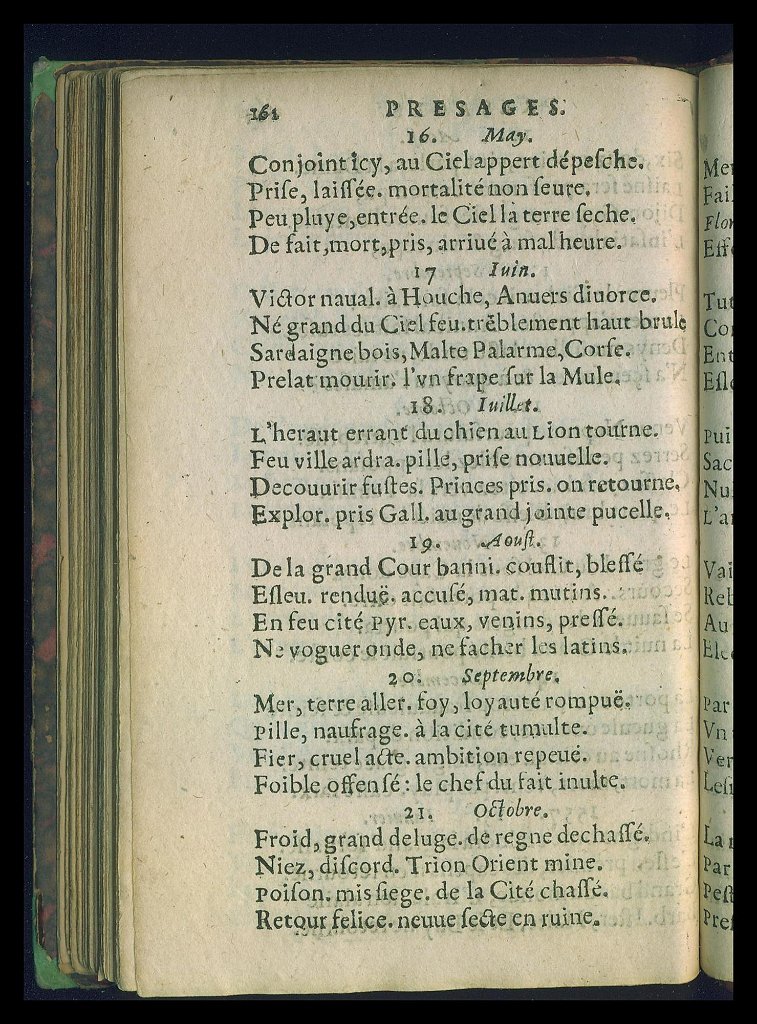 161 PRESAGES.
16. May.
Conjoint icy, au Ciel appert dépeſche.
Priſe, laiſſée. mortalité non ſeure.
Peu pluye, entrée. le Ciel la terre ſeche.
De fait, mort, pris, arriué à mal heure.
17 Iuin.
Victor naual. à Houche, Anuers diuorce.
Né grand du Ciel feu. trẽblement haut brule
Sardaigne bois, Malte Palarme, Corſe.
Prelat mourir. l'vn frape ſur la Mule.
18. Iuillet.
L'heraut errant du chien au Lion tourne.
Feu ville ardra. pille, priſe nouuelle.
Decouurir fuſtes. Princes pris. on retourne.
Explor. pris Gall. au grand jointe pucelle.
19. Aouſt.
De la grand Cour banni. conflit, bleſſé
Eſleu. renduë. accuſé, mat. mutins.
En feu cité Pyr. eaux, venins, preſſé.
Ne voguer onde, ne facher les latins.
20. Septembre.
Mer, terre aller. foy, loyauté rompuë.
Pille, naufrage. à la cité tumulte.
Fier, cruel acte. ambition repeuë.
Foible offenſé: le chef du fait inulte.
21. Octobre.
Froid, grand deluge. de regne dechaſſé.
Niez, diſcord. Trion Orient mine.
Poiſon. mis ſiege. de la Cité chaſſé.
Retour felice. neuue ſecte en ruine.